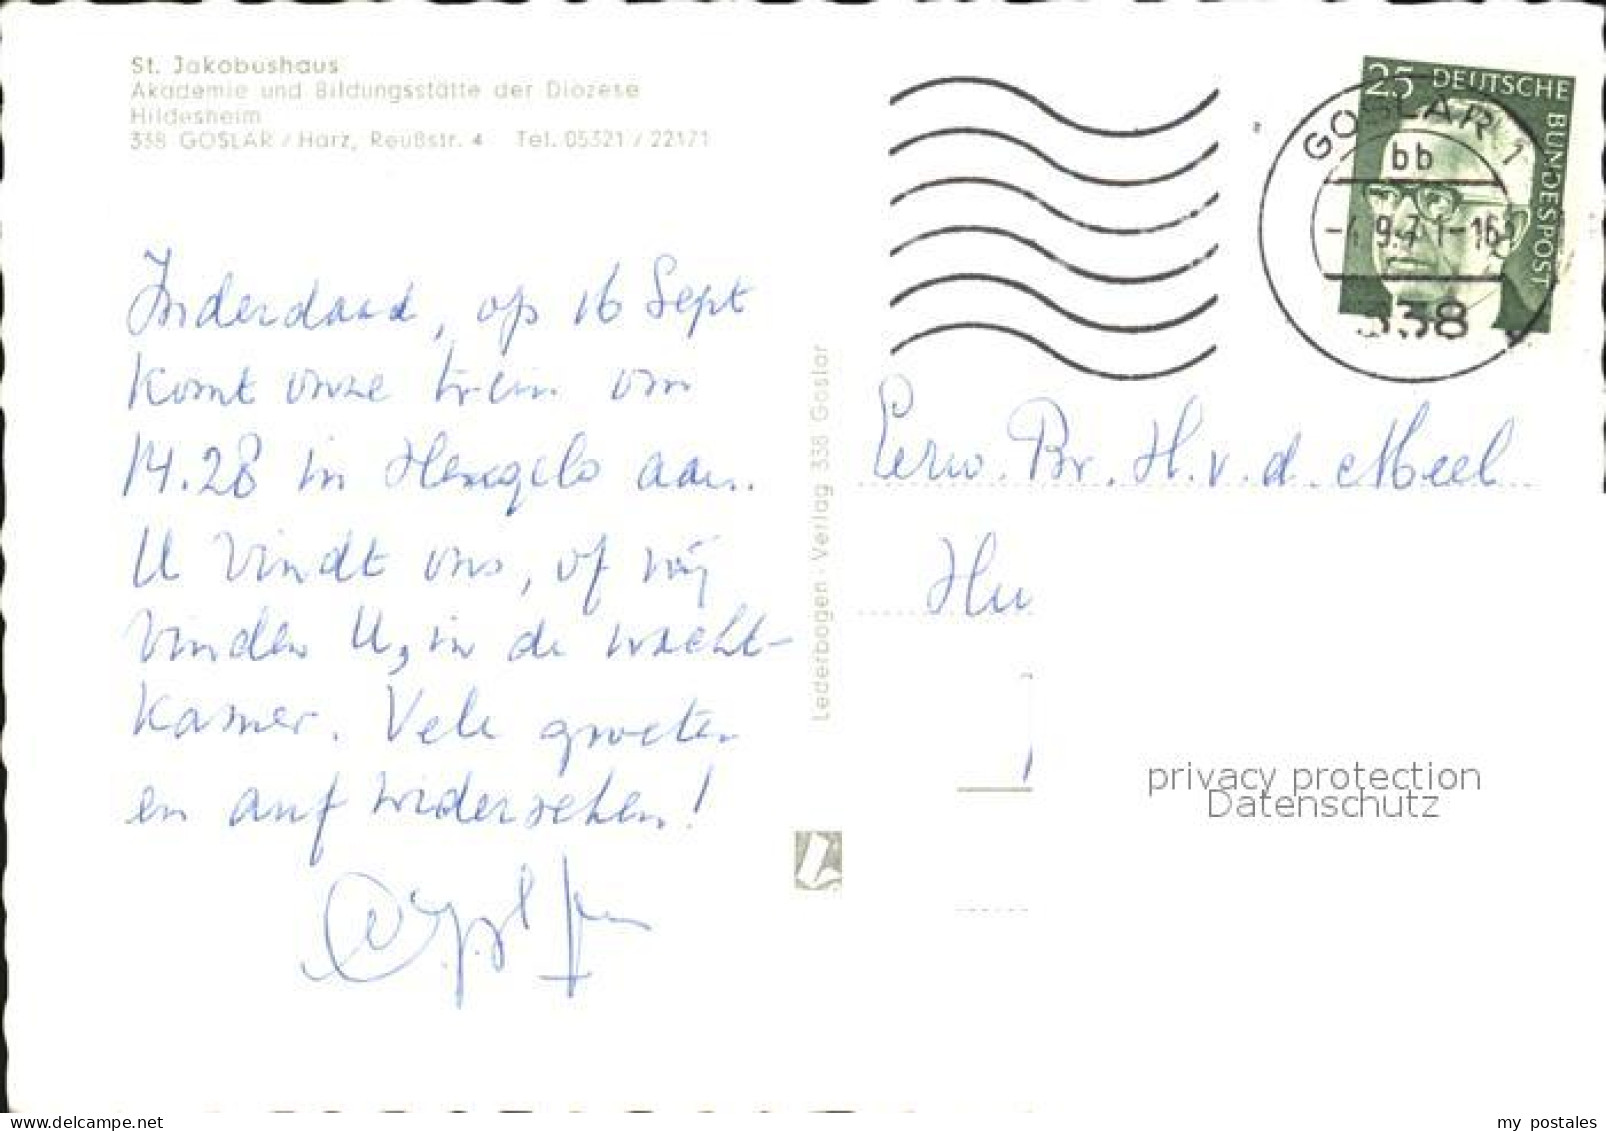 St. Jakobushaus
Akademie und Bildungsstätte der Diözese
Hildesheim
338 GOSLAR / Harz, Reußstr. 4 Tel. 05321 / 22171
25 DEUTSCHE
BUNDESPOST
GOSLAR 1
bb
9.71-16
338
Inderdaad, op 16 Sept
komt onze trein om
14.28 in Hengelo aan.
U vindt ons, of wij
vinden U, in de wacht-
kamer. Vele groeten
en auf widersehen!
Lederbogen - Verlag 338 Goslar
Eerw. Br. H. v. d. Meel
privacy protection
Datenschutz
www.delcampe.net
my_postales